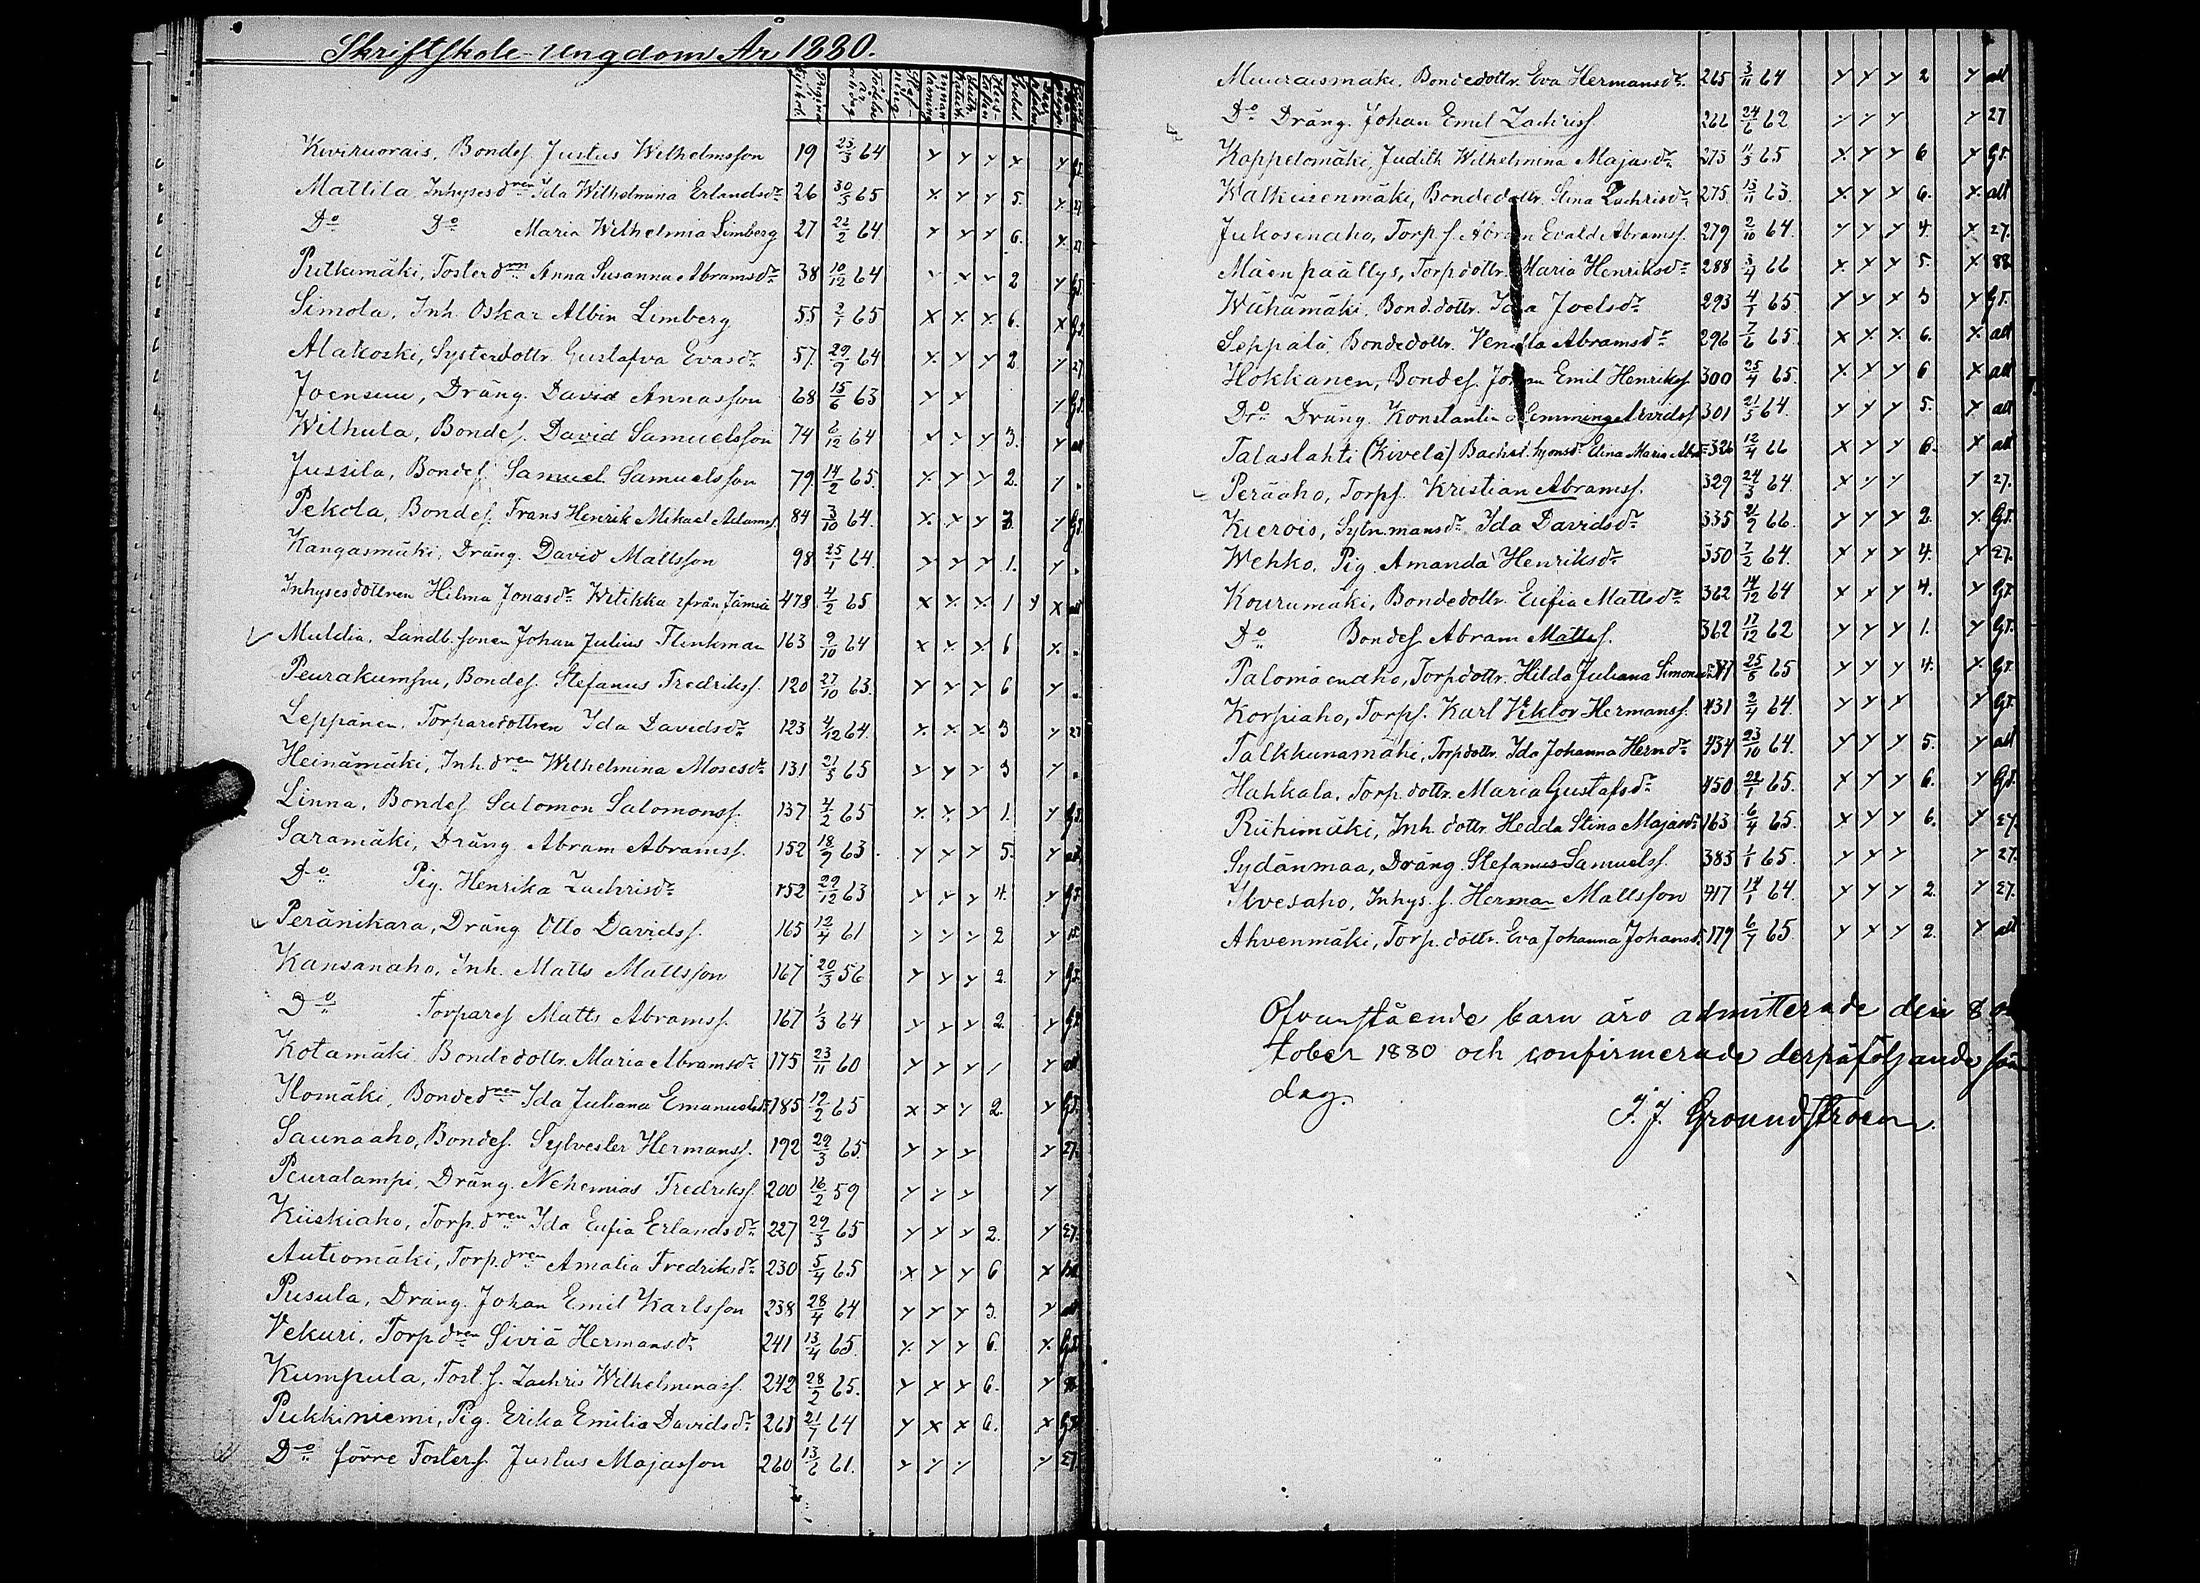 Skriftskole-Ungdom År 1880.
Kiviruorais, Bondes. Justus Wilhelmsson 19 23/3 64 x x x x x
Mattila, Inhysesdren Ida Wilhelmina Erlandsdr 26 30/5 65 x x x 5. x 27
Do Do Maria Wilhelmia Limberg 27 22/2 64 x x x 6. x 27
Putkimäki, Fosterdrn Anna Susanna Abramsdr 38 10/12 64 x x x 2 x Gt.
Simola, Inh. Oskar Albin Limberg 55 2/1 65 x x x 6. x Gt
Alakoski, Systerdottr. Gustafva Evasdr 57. 29/7 64 x x x 2 x 27
Joensuu, Dräng. David Annasson 68 15/6 63 x x x Gt.
Wilhula, Bondes. David Samuelsson 74 6/12 64 x x x 3. x all
Jussila, Bondes. Samuel Samuelsson 79 14/2 65. x x x 2. x "
Pekola, Bondes. Frans Henrik Mikael Adams. 84 3/10 64. x x x x Gt
Kangasmäki, Dräng. David Mattsson 98 25/1 64. x x x 1. x "
Inhysesdottren Hilma Jonasdr Witikka ifrån Jämsä 478 4/2 65 x x x 1 x x all
Muldia, Landb. sonen Johan Julius Flinkman 163 9/10 64 x x x 6 x "
Peurakumpu, Bondes. Stefanus Fredrikss. 120 27/10 63. x x x 6 x "
Leppänen, Torparedottren Ida Davidsdr 123 4/12 64. x x x 3 x 27
Heinämäki, Inh. dren Wilhelmina Mosesdr 131 21/5 65 x x x 3 x "
Linna, Bondes. Salomon Salomonss. 137 4/2 65 x x x 1. x Gt.
Saramäki, Dräng Abram Abramss. 152 18/9 63. x x x 5. x all
Do Pig. Henrika Zachrisdr 152 29/12 63 x x x 4. x Gt
Peränikara, Dräng Otto Davidss. 165 12/4 61 x x x 2 x 15
Kansanaho, Inh. Matts Mattsson 167 20/3 56 x x x 2. x Gt
Do Torpares Matts Abramss. 167 1/3 64 x x x 2. x Gt
Kotamäki, Bondedottr. Maria Abramsdr 175 23/11 60 x x x 1 x all
Ilomäki, Bondedren Ida Juliana Emanuelsdr 185 12/2 65 x x x 2. x Gt.
Saunaaho, Bondes. Sylvester Hermanss. 192 29/3 65. x x x x 27.
Peuralampi, Dräng. Nehemias Fredrikss. 200 16/2 59 x x x x
Kiiskiaho, Torp. dren Ida Eufia Erlandsdr 227 29/3 65 x x x 2. x 27.
Autiomäki, Torp. dren Amalia Fredriksdr 230 5/4 65 x x x 6 x
Pusula, Dräng. Johan Emil Karlsson 238 28/4 64 x x x 3. x all
Vekuri, Torp dren Siviä Hermansdr 241 13/4 65. x x x 6. x Gt.
Kumpula, Fost. s. Zachris Wilhelminass. 242 28/2 65. x x x 6. x
Pukkiniemi, Pig. Erika Emilia Davidsdr 261 21/7 64 x x x 6. x Gt
Do förre Fosters. Justus Majasson 260 13/6 61. x x x x 27
Muuraismäki, Bondedottr. Eva Hermansdr 265 3/11 64 x x x 2 x all
Do Dräng. Johan Emil Zachriss. 266 24/6 62 x x x x 27
Koppelomäki, Judith Wilhelmina Majasdr 273 11/3 65 x x x 6 x Gt.
Walkeisenmäki, Bondedottr. Stina Zachrisdr 275 13/11 63. x x x 6. x all
Jukosenaho, Torp s. Abram Evald Abramss. 279 2/10 64. x x x 4. x 27.
Mäenpäällys, Torpdottr. Maria Henriksdr 288 3/4 66 x x x 5. x 88
Wähämäki, Bond. dottr. Ida Joelsdr 293 4/1 65. x x x 3 x Gt.
Seppälä, Bondedottr. Vendla Abramsdr 296 7/6 65. x x x 6. x all
Hokkanen, Bondes. Johan Emil Henrikss. 300 25/4 65. x x x 6 x all
Do Dräng. Konstantin Flemming Arvidss. 301 21/5 64. x x x 5. x all
Talaslahti (Kivelä) Elina Maria 326 12/4 66 x x x 6. x all
Peräaho, Torps. Kristian Abramss. 329 24/3 64. x x x x 27.
Kierois, Sytn.mansdr Ida Davidsdr 335 21/9 66. x x x 2. x Gt.
Wehko, Pig. Amanda Henriksdr 350 7/2 64. x x x 4. x 27.
Kourumäki, Bondedottr. Eufia Mattsdr 362 14/12 64 x x x 4. x Gt.
Do Bondes Abram Mattss. 362 17/12 62 x x x 1. x Gt.
Palomäenaho, Torpdottr. Hilda Juliana Simonsdr 25/5 65 x x x 4. x Gt.
Korpiaho, Torps. Karl Viktor Hermanss. 431 2/4 64. x x x x Gt.
Talkkunamäki, Torpdottr. Ida Johanna Hermdr 434 23/10 64. x x x 5. x all
Hahkala, Torp. dottr. Maria Gustafsdr 450 22/1 65. x x x 6. x Gt.
Riihimäki, Inh. dottr. Hedda Stina Majasdr 163 6/4 65. x x x 6. x 27.
Sydänmaa, Dräng. Stefanus Samuelss. 383 1/1 65. x x x x 27.
Ilvesaho, Inhys. s. Herman Mattsson 417 14/1 64. x x x 2. x 27.
Ahvenmäki, Torp. dottr. Eva Johanna Johansd. 179 6/7 65. x x x 2. x all
Ofvanstående barn äro admitterade den 8 ok
tober 1880 och confirmerade derpåföljande sön
dag.
J. J. Groundstroem.